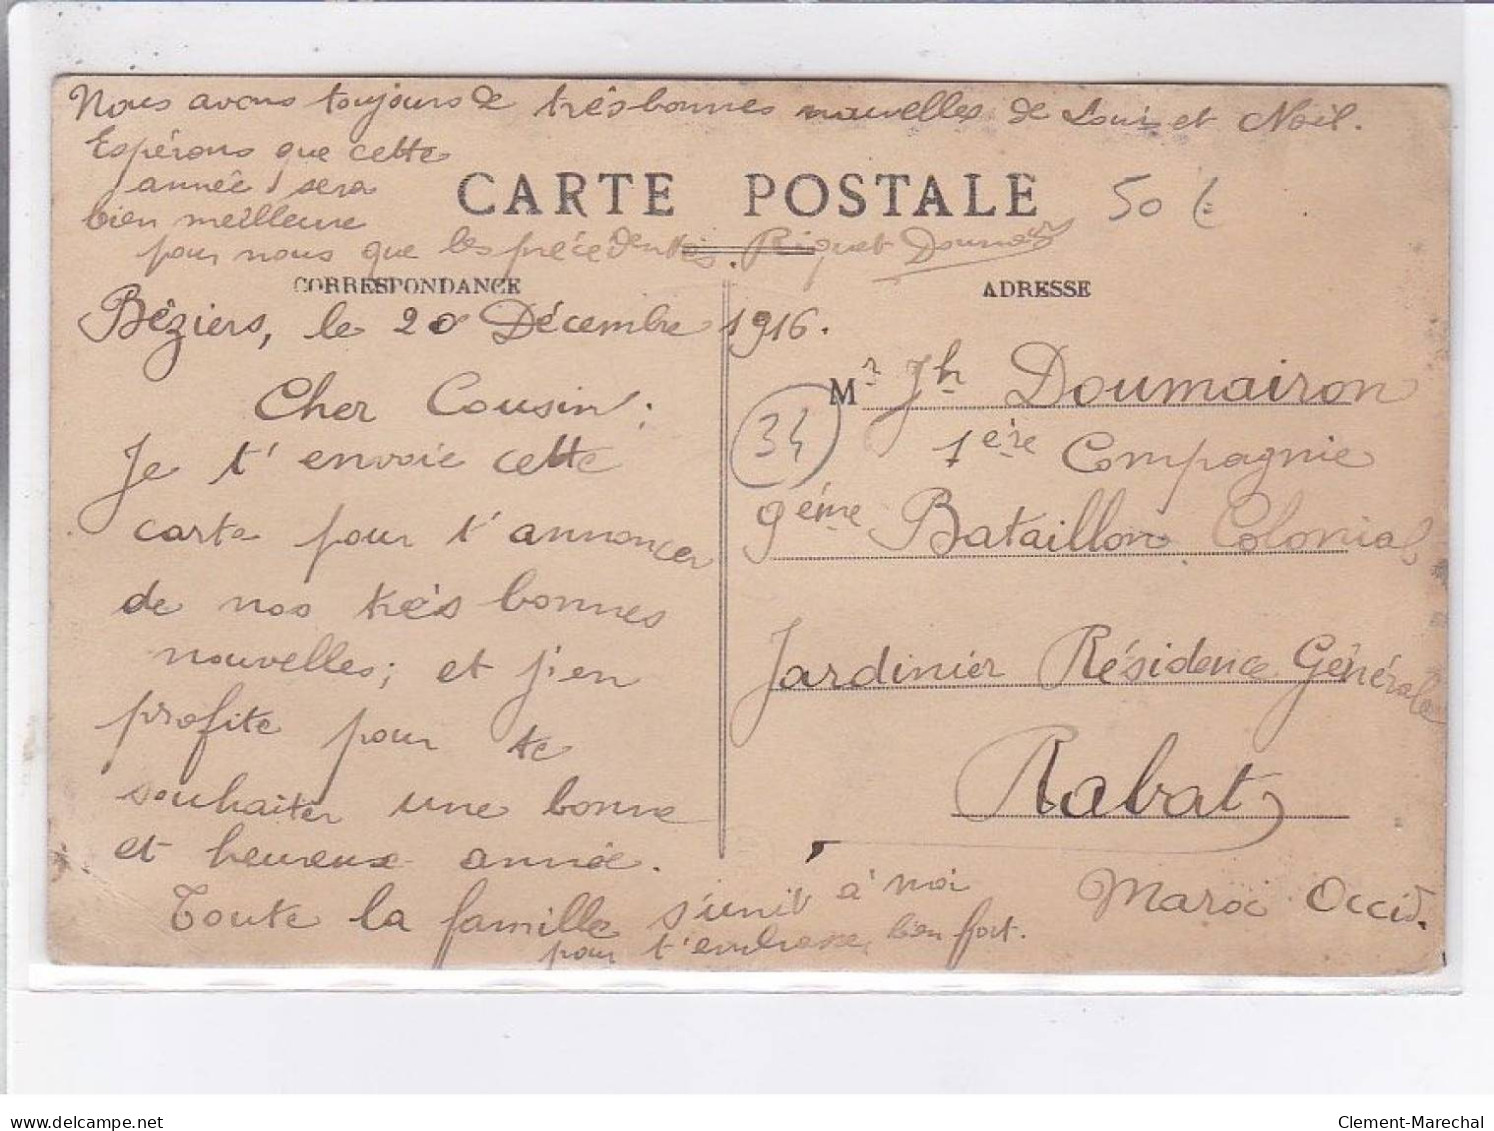 Nous avons toujours de très bonnes nouvelles de Louis et Noël.
Espérons que cette
année sera
bien meilleure
pour nous que les précédentes. Riquet
CARTE POSTALE
50 €
CORRESPONDANCE
ADRESSE
Béziers, le 20 Décembre 1916.
Cher Cousin;
Je t'envoie cette
carte pour t'annoncer
de nos très bonnes
nouvelles; et j'en
profite pour te
souhaiter une bonne
et heureuse année.
Toute la famille s'unit à moi
pour t'embrasser bien fort.
34
Mr Jh Doumairon
1ère Compagnie
9ème Bataillon Colonial
Jardinier Résidence Générale
Rabat
Maroc Occid.
delcampe.net
Clement-Marechal